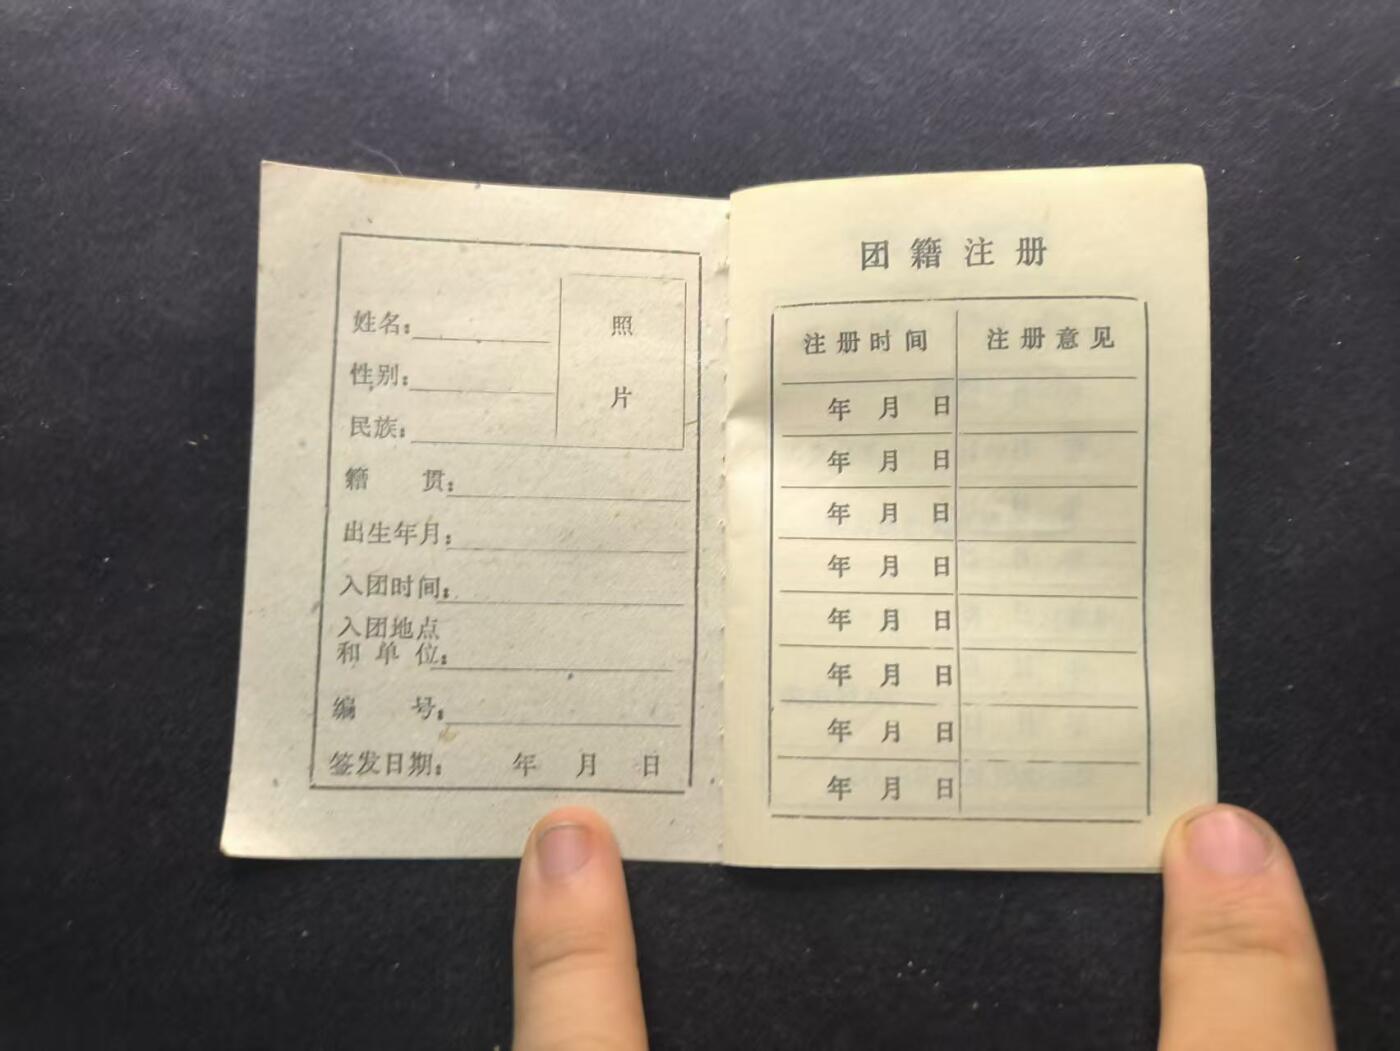 姓名:
性别:
民族:
照
片
籍 贯:
出生年月:
入团时间:
入团地点
和单位:
编 号:
签发日期: 年 月 日
团籍注册
注册时间 注册意见
年 月 日
年 月 日
年 月 日
年 月 日
年 月 日
年 月 日
年 月 日
年 月 日